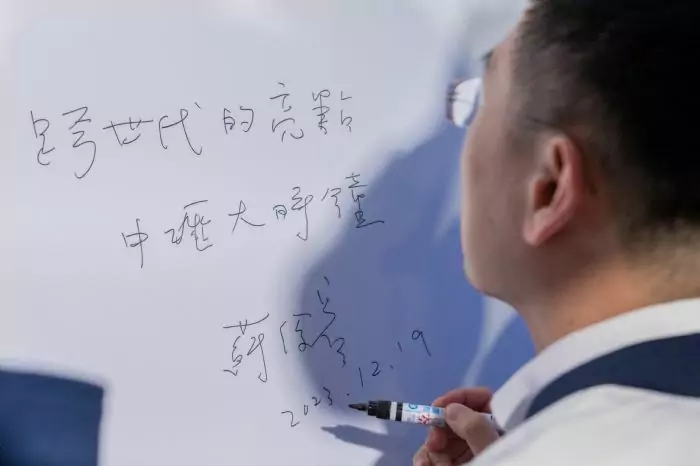 跨世代的亮點
中壢大時鐘
蘇俊賓
2023.12.19